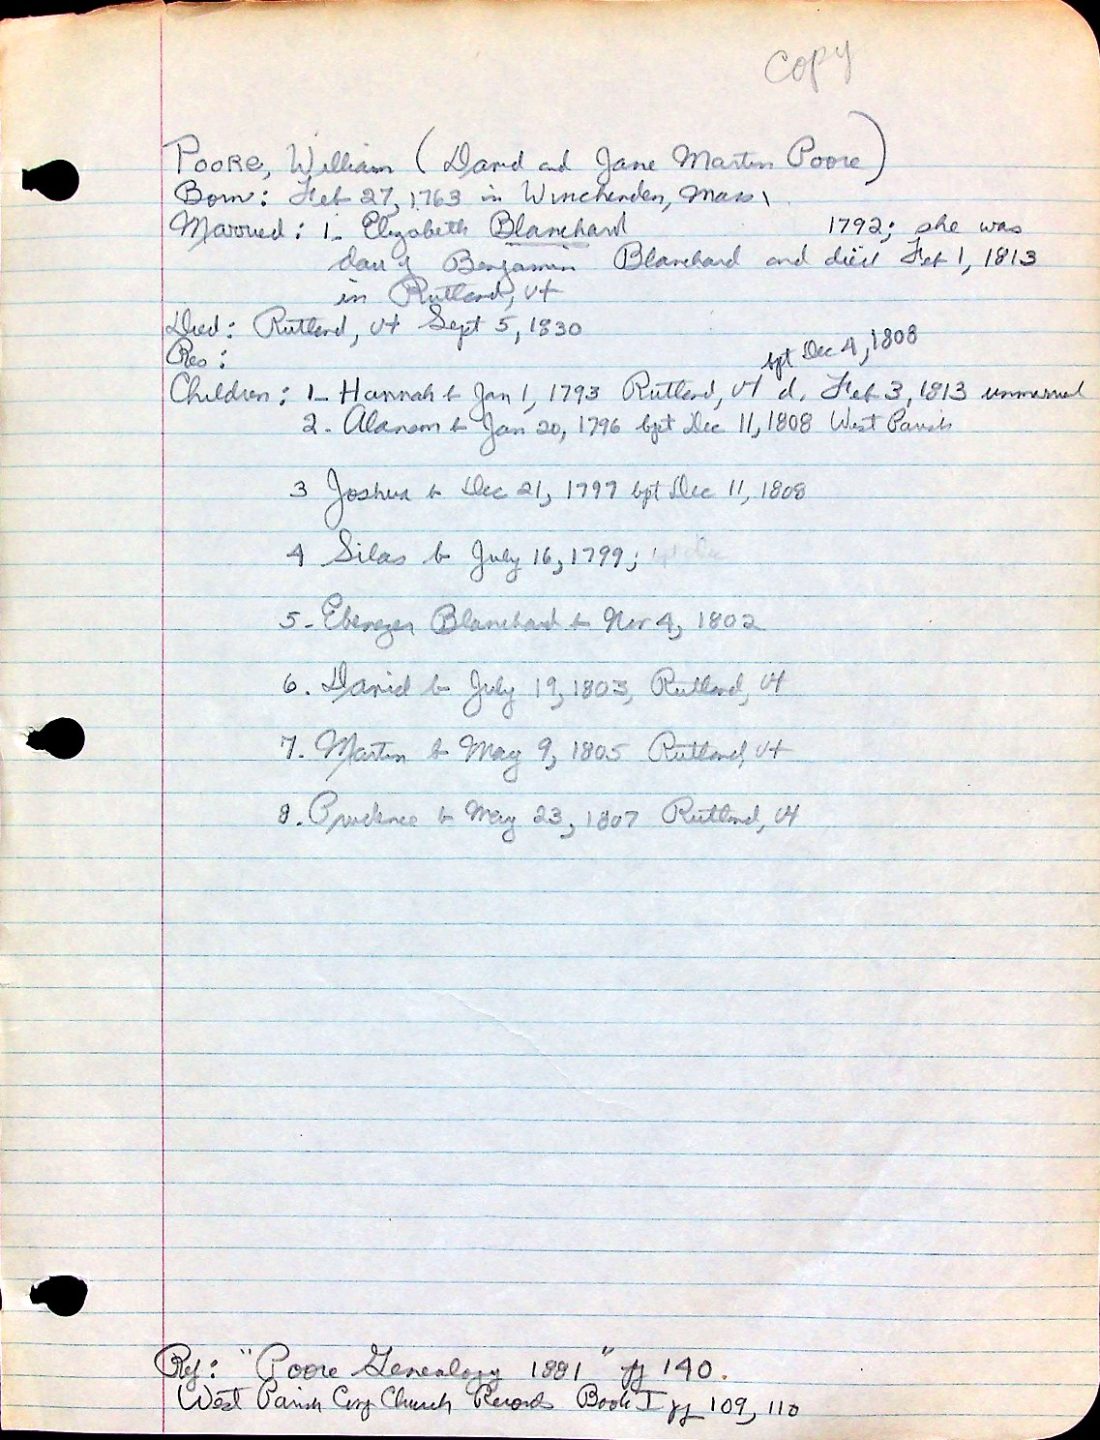 Copy
Poore, William (David and Jane Martin Poore)
Born: Feb 27, 1763 in Winchenden, Mass,
Married: 1- Elizabeth Blanchard 1792; she was
dau of Benjamin Blanchard and died Feb 1, 1813
in Rutland, Vt
Died: Rutland, Vt Sept 5, 1830
Res:
bpt Dec 4, 1808
Children: 1- Hannah b Jan 1, 1793 Rutland, Vt d. Feb 3, 1813 unmarried
2. Alanson b Jan 20, 1796 bpt Dec 11, 1808 West Parish
3 Joshua b Dec 21, 1797 bpt Dec 11, 1808
4 Silas b July 16, 1799;
5- Ebenezer Blanchard b Nov 4, 1802
6. David b July 19, 1803, Rutland, Vt
7. Martin b May 9, 1805 Rutland, Vt
8. Prudence b May 23, 1807 Rutland, Vt
Ref: "Poore Genealogy 1881" pg 140.
West Parish Cong Church Records Book I pg 109, 110